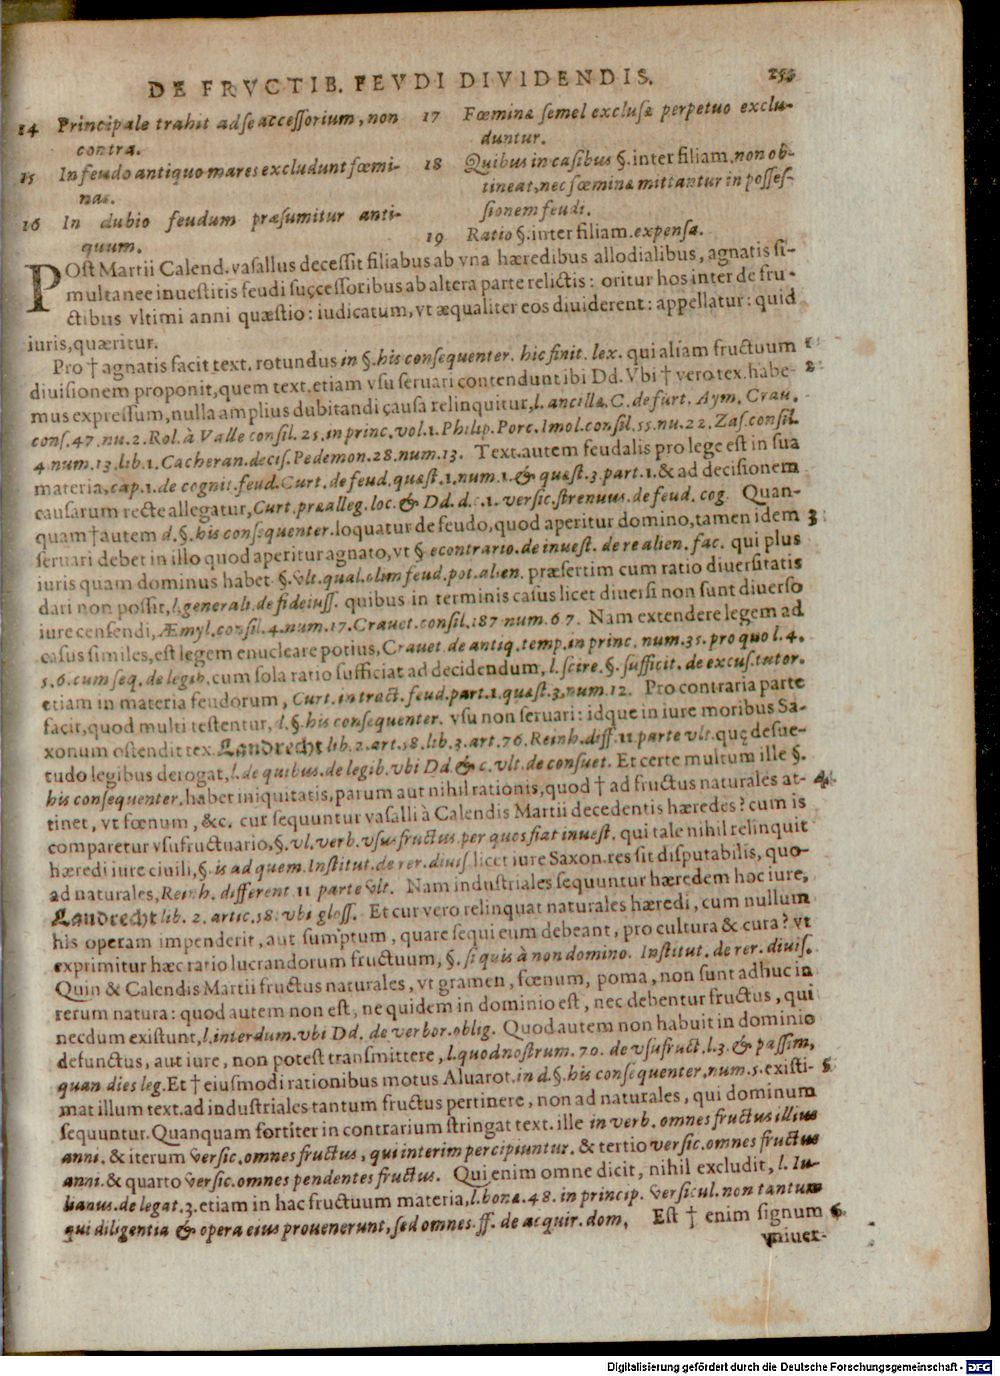 DE FRVCTIB. FEVDI DIVIDENDIS. 255
14 Principale trahit ad se accessorium, non
contra.
15 In feudo antiquo mares excludunt fœmi-
nas.
16 In dubio feudum præsumitur anti-
quum.
17 Fœminæ semel exclusæ perpetuo exclu-
duntur.
18 Quibus in casibus §. inter filiam. non ob-
tineat, nec fœminæ mittantur in posses-
sionem feudi.
19 Ratio §. inter filiam. expensa.
POst Martii Calend. vasallus decessit filiabus ab vna hæredibus allodialibus, agnatis si-
multanee inuestitis feudi successoribus ab altera parte relictis: oritur hos inter de fru-
ctibus vltimi anni quæstio: iudicatum, vt æqualiter eos diuiderent: appellatur: quid
iuris, quæritur.
Pro † agnatis facit text. rotundus in §. his consequenter. hic finit. lex. qui aliam fructuum 1
diuisionem proponit, quem text. etiam vsu seruari contendunt ibi Dd. Vbi † vero tex. habe- 2
mus expressum, nulla amplius dubitandi causa relinquitur, l. ancillæ. C. de furt. Aym. Crau.
cons. 47. nu. 2. Rol. à Valle consil. 25. in princ. vol. 1. Philip. Porc. Imol. consil. 55. nu. 22. Zas. consil.
4. num. 13. lib. 1. Cacheran. decis. Pedemon. 28. num. 13. Text. autem feudalis pro lege est in sua
materia, cap. 1. de cognit. feud. Curt. de feud. quæst. 1. num. 1. & quæst. 3. part. 1. & ad decisionem
causarum recte allegatur, Curt. præalleg. loc. & Dd. d. c. 1. versic. strenuus. de feud. cog. Quan-
quam † autem d. §. his consequenter. loquatur de feudo, quod aperitur domino, tamen idem 3
seruari debet in illo quod aperitur agnato, vt § econtrario. de inuest. de re alien. fac. qui plus
iuris quam dominus habet §. vlt. qual. olim feud. pot. alien. præsertim cum ratio diuersitatis
dari non possit, l. generali. de fideiuss. quibus in terminis casus licet diuersi non sunt diuerso
iure censendi, Æmyl. consil. 4. num. 17. Crauet. consil. 187 num. 67. Nam extendere legem ad
casus similes, est legem enucleare potius, Crauet. de antiq. temp. in princ. num. 35. pro quo l. 4.
5. 6. cum seq. de legib. cum sola ratio sufficiat ad decidendum, l. scire. §. sufficit. de excus. tutor.
etiam in materia feudorum, Curt. in tract. feud. part. 1. quæst. 3. num. 12. Pro contraria parte
facit, quod multi testentur, d. §. his consequenter. vsu non seruari: idque in iure moribus Sa-
xonum ostendit tex. Landrecht lib. 2. art. 58. lib. 3. art. 76. Reinh. diff. 11 parte vlt. quę desue-
tudo legibus derogat, l. de quibus. de legib. vbi Dd. & c. vlt. de consuet. Et certe multum ille §.
his consequenter. habet iniquitatis, parum aut nihil rationis, quod † ad fructus naturales at- 4
tinet, vt fœnum, &c. cur sequuntur vasalli à Calendis Martii decedentis hæredes? cum is
comparetur vsufructuario, §. vl. verb. vsusfructus per quos fiat inuest. qui tale nihil relinquit
hæredi iure ciuili, §. is ad quem. Institut. de rer. diuis. licet iure Saxon. res sit disputabilis, quo-
ad naturales, Reinh. different 11 parte vlt. Nam industriales sequuntur hæredem hoc iure,
Landrecht lib. 2. artic. 58. vbi gloss. Et cur vero relinquat naturales hæredi, cum nullum
his operam impenderit, aut sumptum, quare sequi eum debeant, pro cultura & cura? vt
exprimitur hæc ratio lucrandorum fructuum, §. si quis à non domino. Institut. de rer. diuis.
Quin & Calendis Martii fructus naturales, vt gramen, fœnum, poma, non sunt adhuc in
rerum natura: quod autem non est, ne quidem in dominio est, nec debentur fructus, qui
necdum existunt, l. interdum. vbi Dd. de verbor. oblig. Quod autem non habuit in dominio
defunctus, aut iure, non potest transmittere, l. quod nostrum. 70. de vsufruct. l. 3. & passim,
quan dies leg. Et † eiusmodi rationibus motus Aluarot. in d. §. his consequenter, num. 5. existi- 5
mat illum text. ad industriales tantum fructus pertinere, non ad naturales, qui dominum
sequuntur. Quanquam fortiter in contrarium stringat text. ille in verb. omnes fructus illius
anni. & iterum versic. omnes fructus, qui interim percipiuntur. & tertio versic. omnes fructus
anni. & quarto versic. omnes pendentes fructus. Qui enim omne dicit, nihil excludit, l. Iu-
lianus. de legat. 3. etiam in hac fructuum materia, l. bonæ. 48. in princip. versicul. non tantum
qui diligentia & opera eius prouenerunt, sed omnes. ff. de acquir. dom, Est † enim signum 6
vniuer-
Digitalisierung gefördert durch die Deutsche Forschungsgemeinschaft - DFG